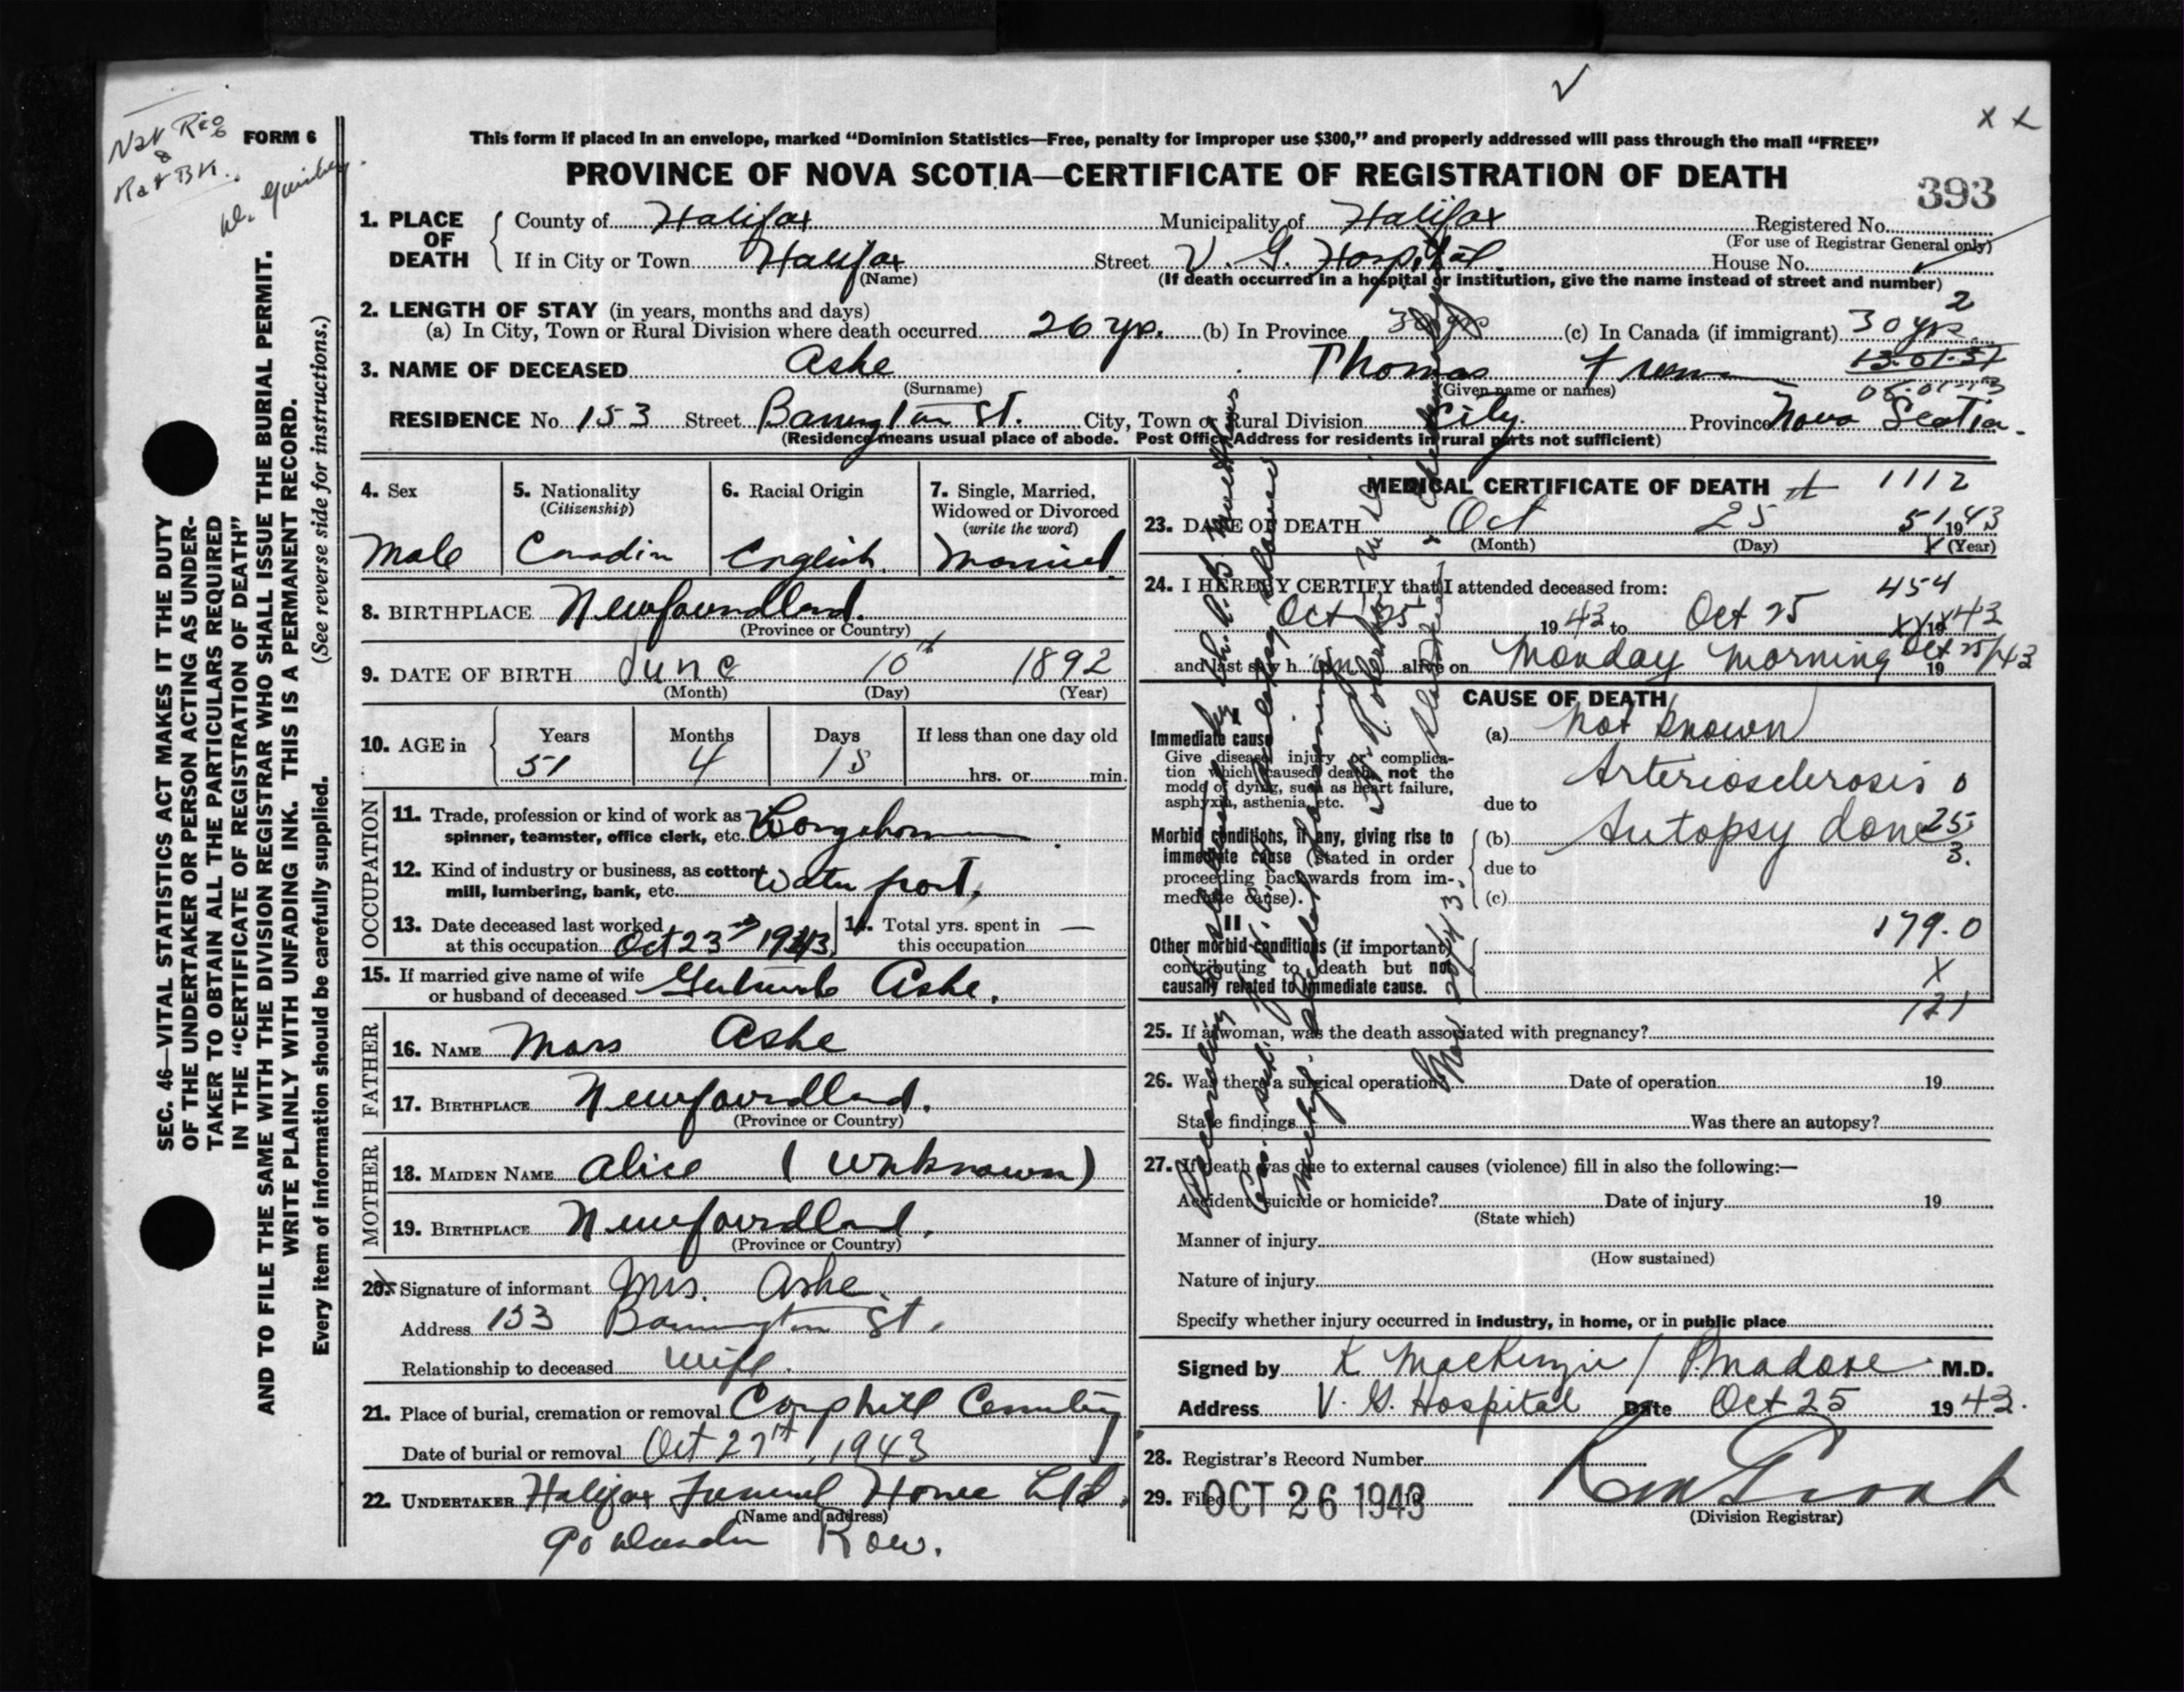 Nat Reg
&
Rat Bk.
FORM 6
This form if placed in an envelope, marked “Dominion Statistics—Free, penalty for improper use $300,” and properly addressed will pass through the mail “FREE”
PROVINCE OF NOVA SCOTIA—CERTIFICATE OF REGISTRATION OF DEATH
393
1. PLACE OF DEATH
County of Halifax Municipality of Halifax Registered No.
(For use of Registrar General only)
If in City or Town Halifax Street V. G. Hospital House No.
(Name) (If death occurred in a hospital or institution, give the name instead of street and number)
2. LENGTH OF STAY (in years, months and days) 2
(a) In City, Town or Rural Division where death occurred 26 yrs. (b) In Province 30 yrs (c) In Canada (if immigrant) 30 yrs
3. NAME OF DECEASED Ashe Thomas
(Surname) (Given name or names)
RESIDENCE No. 153 Street Barrington St. City, Town or Rural Division City. Province Nova Scotia.
(Residence means usual place of abode. Post Office Address for residents in rural parts not sufficient)
SEC. 46—VITAL STATISTICS ACT MAKES IT THE DUTY
OF THE UNDERTAKER OR PERSON ACTING AS UNDER-
TAKER TO OBTAIN ALL THE PARTICULARS REQUIRED
IN THE “CERTIFICATE OF REGISTRATION OF DEATH”
AND TO FILE THE SAME WITH THE DIVISION REGISTRAR WHO SHALL ISSUE THE BURIAL PERMIT.
WRITE PLAINLY WITH UNFADING INK. THIS IS A PERMANENT RECORD.
Every item of information should be carefully supplied. (See reverse side for instructions.)
4. Sex 5. Nationality 6. Racial Origin 7. Single, Married,
(Citizenship) Widowed or Divorced
(write the word)
Male Canadin English. Married.
8. BIRTHPLACE Newfoundland.
(Province or Country)
9. DATE OF BIRTH June 10th 1892
(Month) (Day) (Year)
10. AGE in Years Months Days If less than one day old
51 4 15 hrs. or min.
OCCUPATION
11. Trade, profession or kind of work as
spinner, teamster, office clerk, etc. Longshoreman
12. Kind of industry or business, as cotton
mill, lumbering, bank, etc. Water front.
13. Date deceased last worked
at this occupation Oct 23rd 1943
14. Total yrs. spent in
this occupation —
15. If married give name of wife
or husband of deceased Gertrude Ashe.
FATHER
16. NAME Mars Ashe
17. BIRTHPLACE Newfoundland.
(Province or Country)
MOTHER
18. MAIDEN NAME Alice (Unknown)
19. BIRTHPLACE Newfoundland.
(Province or Country)
20. Signature of informant Mrs. Ashe.
Address 153 Barrington St.
Relationship to deceased wife.
21. Place of burial, cremation or removal Camphill Cemetery
Date of burial or removal Oct 27th, 1943
22. UNDERTAKER Halifax Funeral Home Ltd.
(Name and address)
90 Row.
MEDICAL CERTIFICATE OF DEATH 1112
23. DATE OF DEATH Oct 25 51 1943
(Month) (Day) (Year)
24. I HEREBY CERTIFY that I attended deceased from: 454
Oct 25 1943 to Oct 25 1943
and last saw h im alive on Monday morning Oct 25/43 19
CAUSE OF DEATH
I
Immediate cause
Give disease, injury or complica-
tion which caused death, not the
mode of dying, such as heart failure,
asphyxia, asthenia, etc.
(a) Not known
due to Arteriosclerosis 0
Morbid conditions, if any, giving rise to
immediate cause (stated in order
proceeding backwards from im-
mediate cause).
(b) Autopsy done 25
3.
due to
(c)
II
Other morbid conditions (if important)
contributing to death but not
causally related to immediate cause.
179.0
X
121
25. If a woman, was the death associated with pregnancy?
26. Was there a surgical operation? Date of operation 19
State findings Was there an autopsy?
27. If death was due to external causes (violence) fill in also the following:—
Accident, suicide or homicide? Date of injury 19
(State which)
Manner of injury
(How sustained)
Nature of injury
Specify whether injury occurred in industry, in home, or in public place
Signed by K MacKenzie / M.D.
Address V. G. Hospital Date Oct 25 1943.
28. Registrar's Record Number
29. Filed OCT 26 1943
(Division Registrar)